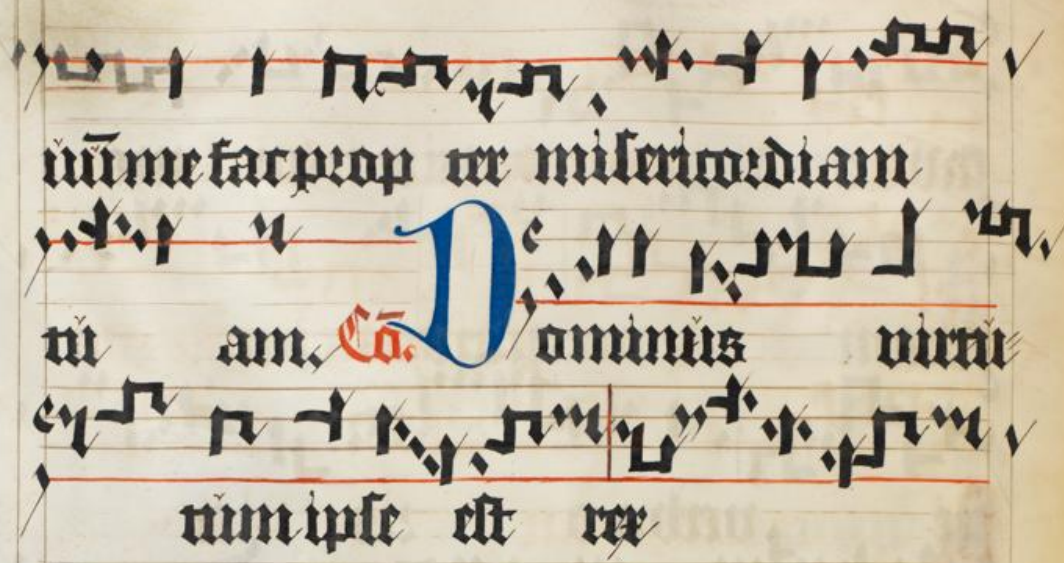 uū me fac prop ter misericordiam
tu am. Cō. Dominus virtu=
tum ipse est rex